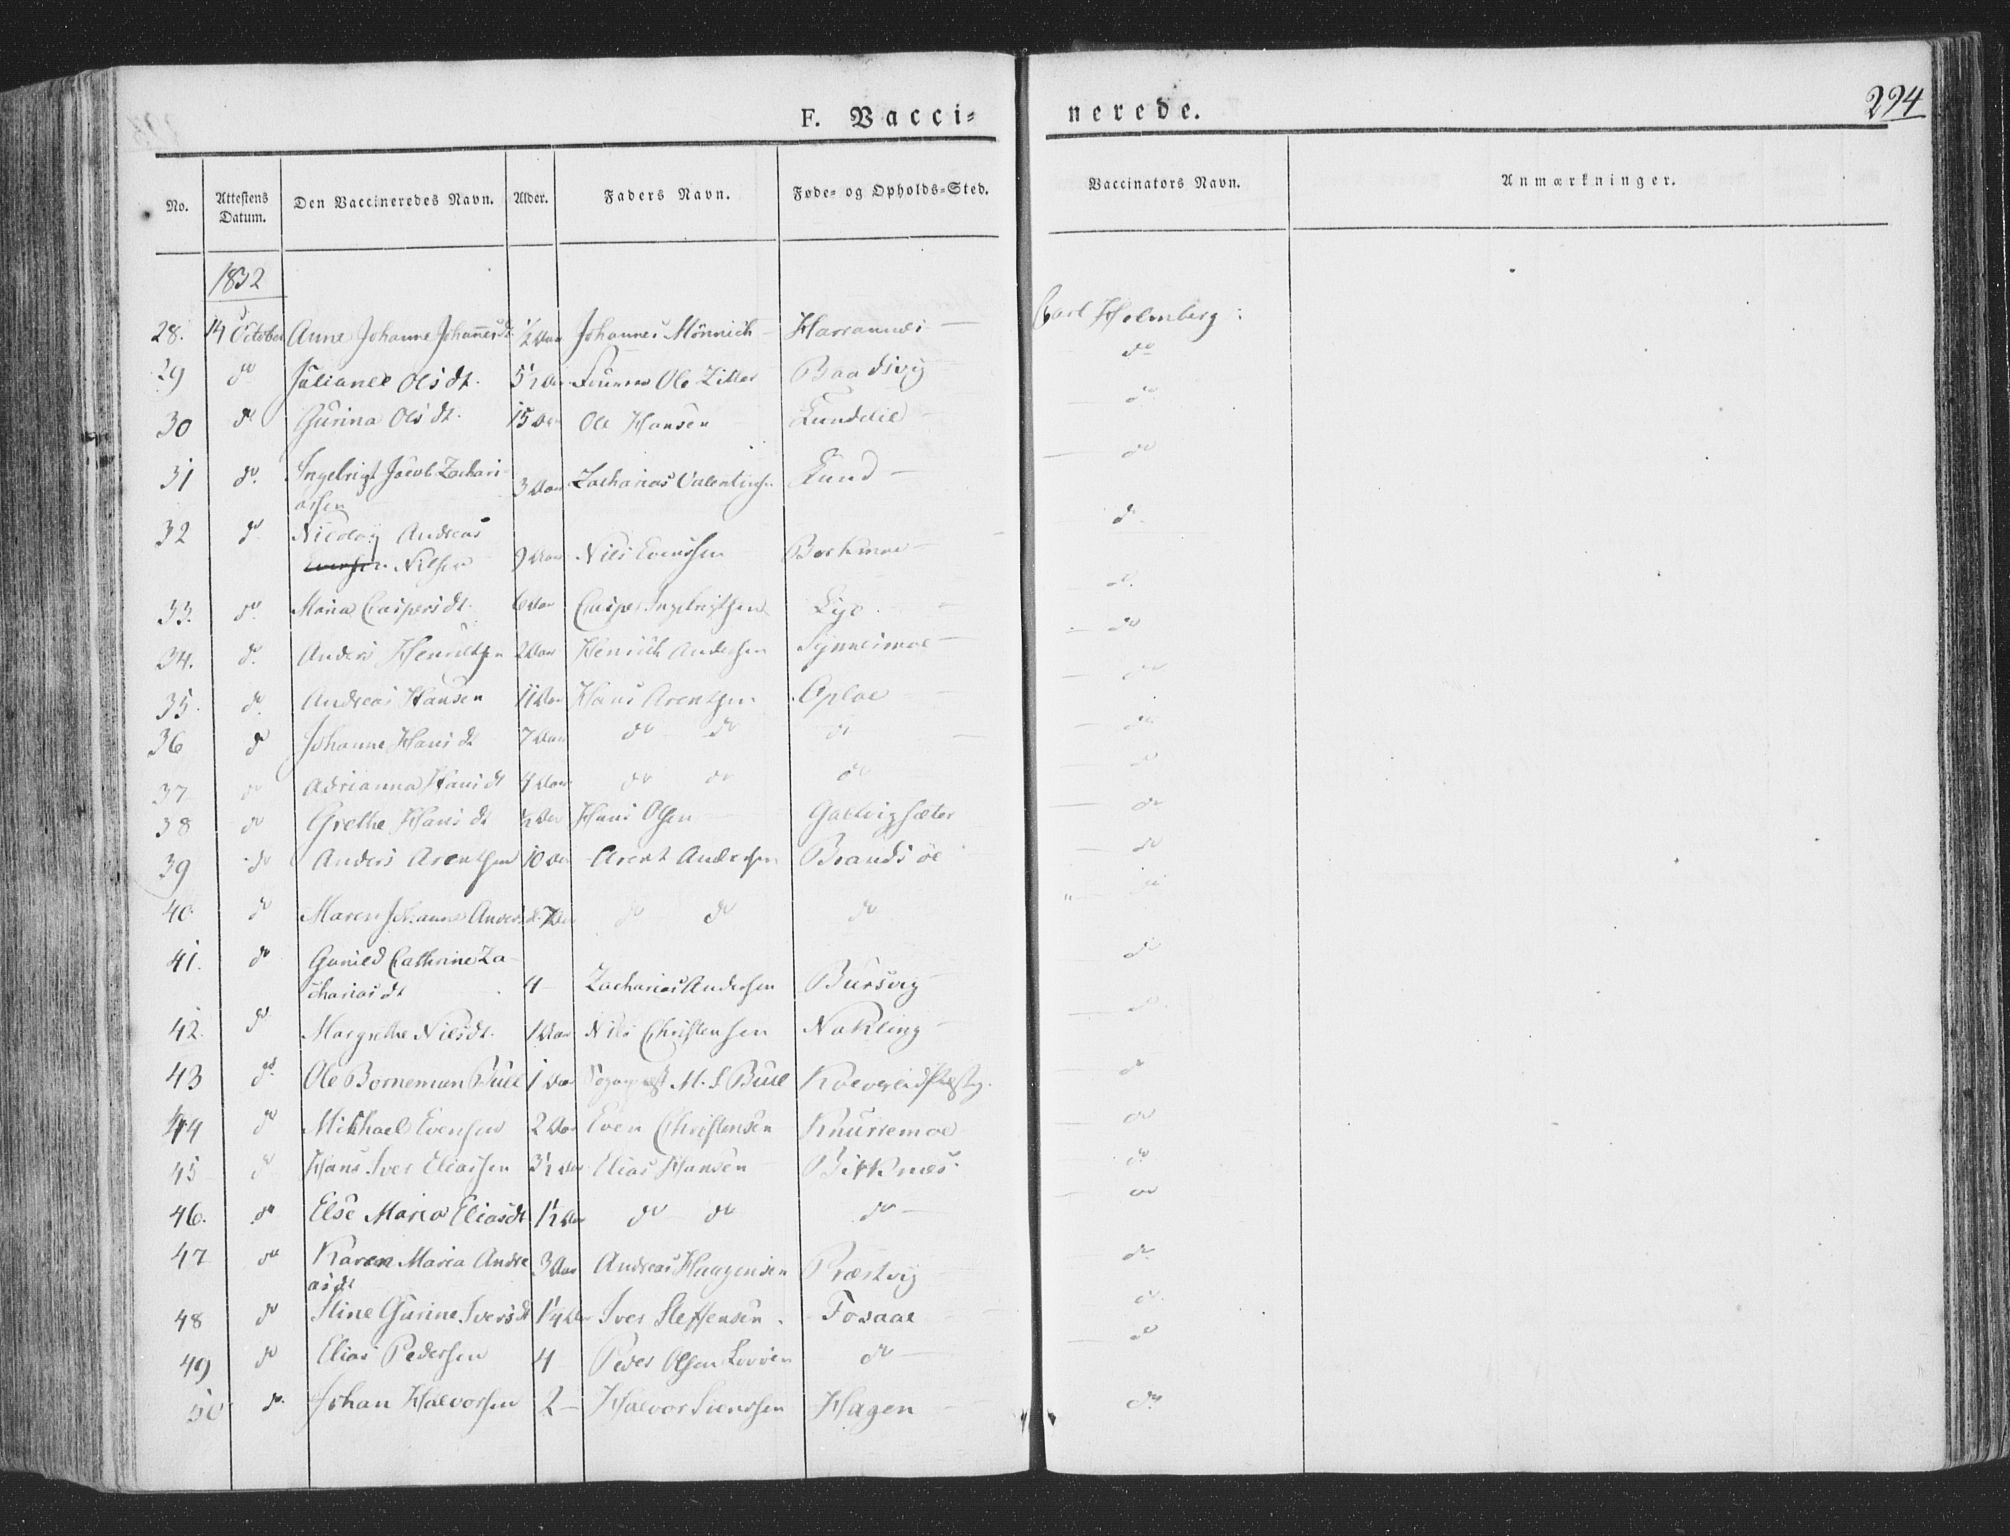 F. Vacci=
nerede.
294
No. Attestens Datum. Den Vaccineredes Navn. Alder. Faders Navn. Føde= og Opholds=Sted. Vaccinators Navn. Anmærkninger.
1832
28. 14 October Anne Johanne Johannesdt ½ Aar Johannes Mönnich Carl Holmberg
29 do Juliane Olsdt. 5½ Aar Ole Baadsvig do
30 do Gurina Olsdt. 15 Aar Ole Hansen do
31 do. Ingebrigt Jacob Zachari-
assen 3 Aar Zacharias Valentinsen Lund do
32 do Nicolay Andreas
Nilsen 9 Aar Nils Evensen do
33. do. Maria Caspersdt. 6 Aar Casper Ingebrigtsen Lye do.
34. do. Anders Henrichsen 2 Aar Henrich Andersen do
35. do. Andreas Hansen 11 Aar Hans Arentsen Oploe do
36 do Johanne Hansdt 7 Aar do do do do
37 do Adrianna Hansdt 4 Aar do do do do
38 do Grethe Hansdt ½ Aar Hans Olsen do
39 do Anders Arentsen 10 Aar Arent Andersen Brandsöe do
40. do Maren Johanne 7 Aar do do do do
41. do Gunild Cathrine Za-
chariasdt 4 Zacharias Andersen Bursvig do
42. do Margrethe Nilsdt. 1 Aar Nils Christensen Nakling do
43 do. Ole Borneman Bull 1 Aar Sogneprest M. S. Bull Kolvereid do
44 do Mikhael Evensen 2 Aar Even Christensen Knurremoe do
45 do Hans Iver Eliassen 3½ Aar Elias Hansen do
46. do Else Maria Eliasdt 1½ Aar do do do do
47 do Karen Maria Andre
asdt 3 Aar Andreas Haagensen Præstvig do
48 do Stine Gurine Iversdt 1¼ Aar Iver Steffensen Fosaae do.
49 do Elias Pedersen 4 Peder Olsen do do
50 do. Johan Halvorsen 2 Halvor Hagen do